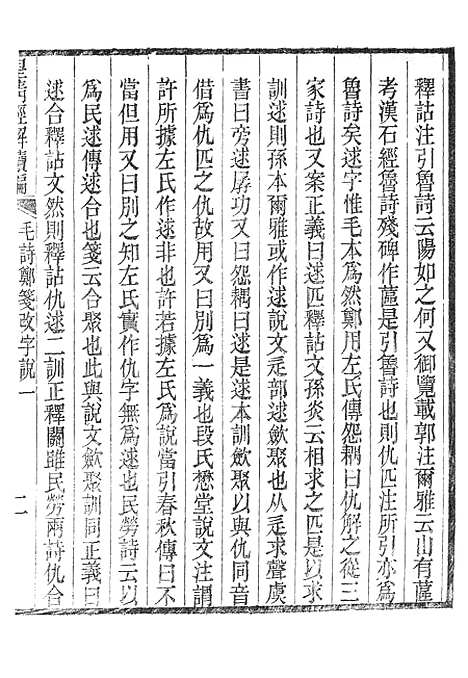 釋詁注引魯詩云陽如之何又御覽載郭注爾雅云山有蓲
考漢石經魯詩殘碑作蓲是引魯詩也則仇匹注所引亦爲
魯詩矣逑字惟毛本爲然鄭用左氏傳怨耦曰仇解之從三
家詩也又案正義曰逑匹釋詁文孫炎云相求之匹是以求
訓逑則孫本爾雅或作逑說文辵部逑斂聚也从辵求聲虞
書曰旁逑孱功又曰怨耦曰逑是逑本訓斂聚以與仇同音
借爲仇匹之仇故用又曰別爲一義也段氏懋堂說文注謂
許所據左氏作逑非也許若據左氏爲說當引春秋傳曰不
當但用又曰別之知左氏實作仇字無爲逑也民勞詩云以
爲民逑傳逑合也箋云合聚也此與說文斂聚訓同正義曰
逑合釋詁文然則釋詁仇逑二訓正釋關雎民勞兩詩仇合
皇清經解續編
毛詩鄭箋改字說一
二